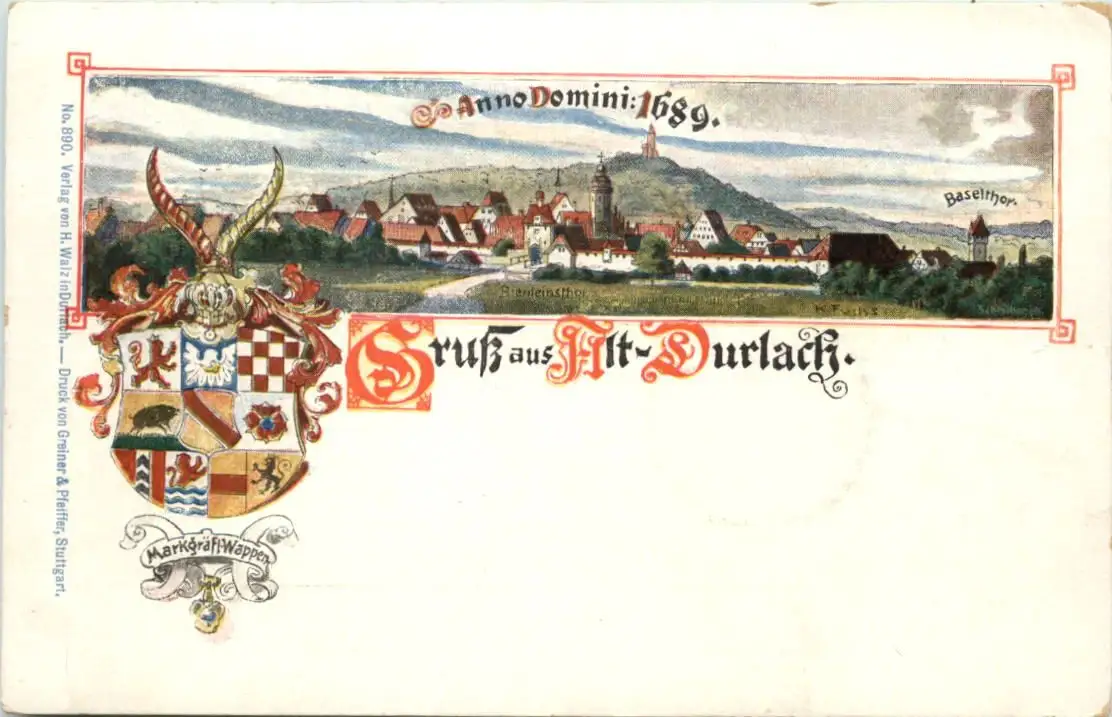 Anno Domini: 1689.
Baselthor.
Bienleinsthor
K. Fuchs
Gruß aus Alt-Durlach.
Markgräfl. Wappen
No. 890. Verlag von H. Walz in Durlach. — Druck von Greiner & Pfeiffer, Stuttgart.